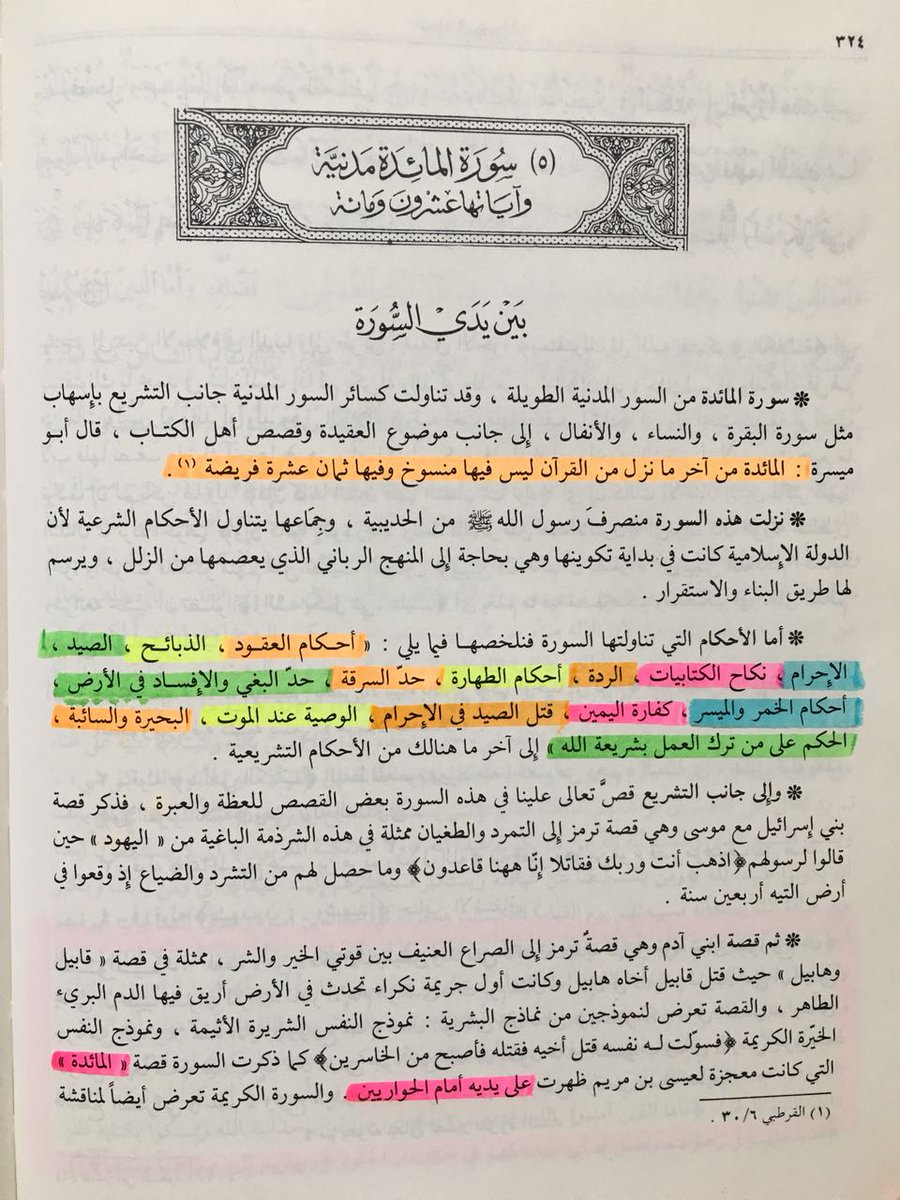 ٣٢٤
(٥) سورة المائدة مدنية
وآياتها عشرون ومائة
بَيْن يَدَي السُّورَة
* سورة المائدة من السور المدنية الطويلة ، وقد تناولت كسائر السور المدنية جانب التشريع بإسهاب
مثل سورة البقرة ، والنساء ، والأنفال ، إلى جانب موضوع العقيدة وقصص أهل الكتاب ، قال أبو
ميسرة : المائدة من آخر ما نزل من القرآن ليس فيها منسوخ وفيها ثمان عشرة فريضة (١) .
* نزلت هذه السورة منصرفَ رسول الله ﷺ من الحديبية ، وجِمَاعها يتناول الأحكام الشرعية لأن
الدولة الإسلامية كانت في بداية تكوينها وهي بحاجة إلى المنهج الرباني الذي يعصمها من الزلل ، ويرسم
لها طريق البناء والاستقرار .
* أما الأحكام التي تناولتها السورة فنلخصها فيما يلي : « أحكام العقود ، الذبائح ، الصيد ،
الإحرام ، نكاح الكتابيات ، الردة ، أحكام الطهارة ، حدّ السرقة ، حدّ البغي والإفساد في الأرض ،
أحكام الخمر والميسر ، كفارة اليمين ، قتل الصيد في الإحرام ، الوصية عند الموت ، البحيرة والسائبة ،
الحكم على من ترك العمل بشريعة الله » إلى آخر ما هنالك من الأحكام التشريعية .
* وإلى جانب التشريع قصَّ تعالى علينا في هذه السورة بعض القصص للعظة والعبرة ، فذكر قصة
بني إسرائيل مع موسى وهي قصة ترمز إلى التمرد والطغيان ممثلة في هذه الشرذمة الباغية من « اليهود » حين
قالوا لرسولهم ﴿اذهب أنت وربك فقاتلا إنّا ههنا قاعدون﴾ وما حصل لهم من التشرد والضياع إذ وقعوا في
أرض التيه أربعين سنة .
* ثم قصة ابني آدم وهي قصةٌ ترمز إلى الصراع العنيف بين قوتي الخير والشر ، ممثلة في قصة « قابيل
وهابيل » حيث قتل قابيل أخاه هابيل وكانت أول جريمة نكراء تحدث في الأرض أريق فيها الدم البريء
الطاهر ، والقصة تعرض لنموذجين من نماذج البشرية : نموذج النفس الشريرة الأثيمة ، ونموذج النفس
الخيّرة الكريمة ﴿فسوّلت له نفسه قتل أخيه فقتله فأصبح من الخاسرين﴾ كما ذكرت السورة قصة « المائدة »
التي كانت معجزة لعيسى بن مريم ظهرت على يديه أمام الحواريين . والسورة الكريمة تعرض أيضاً لمناقشة
(١) القرطبي ٣٠/٦ .